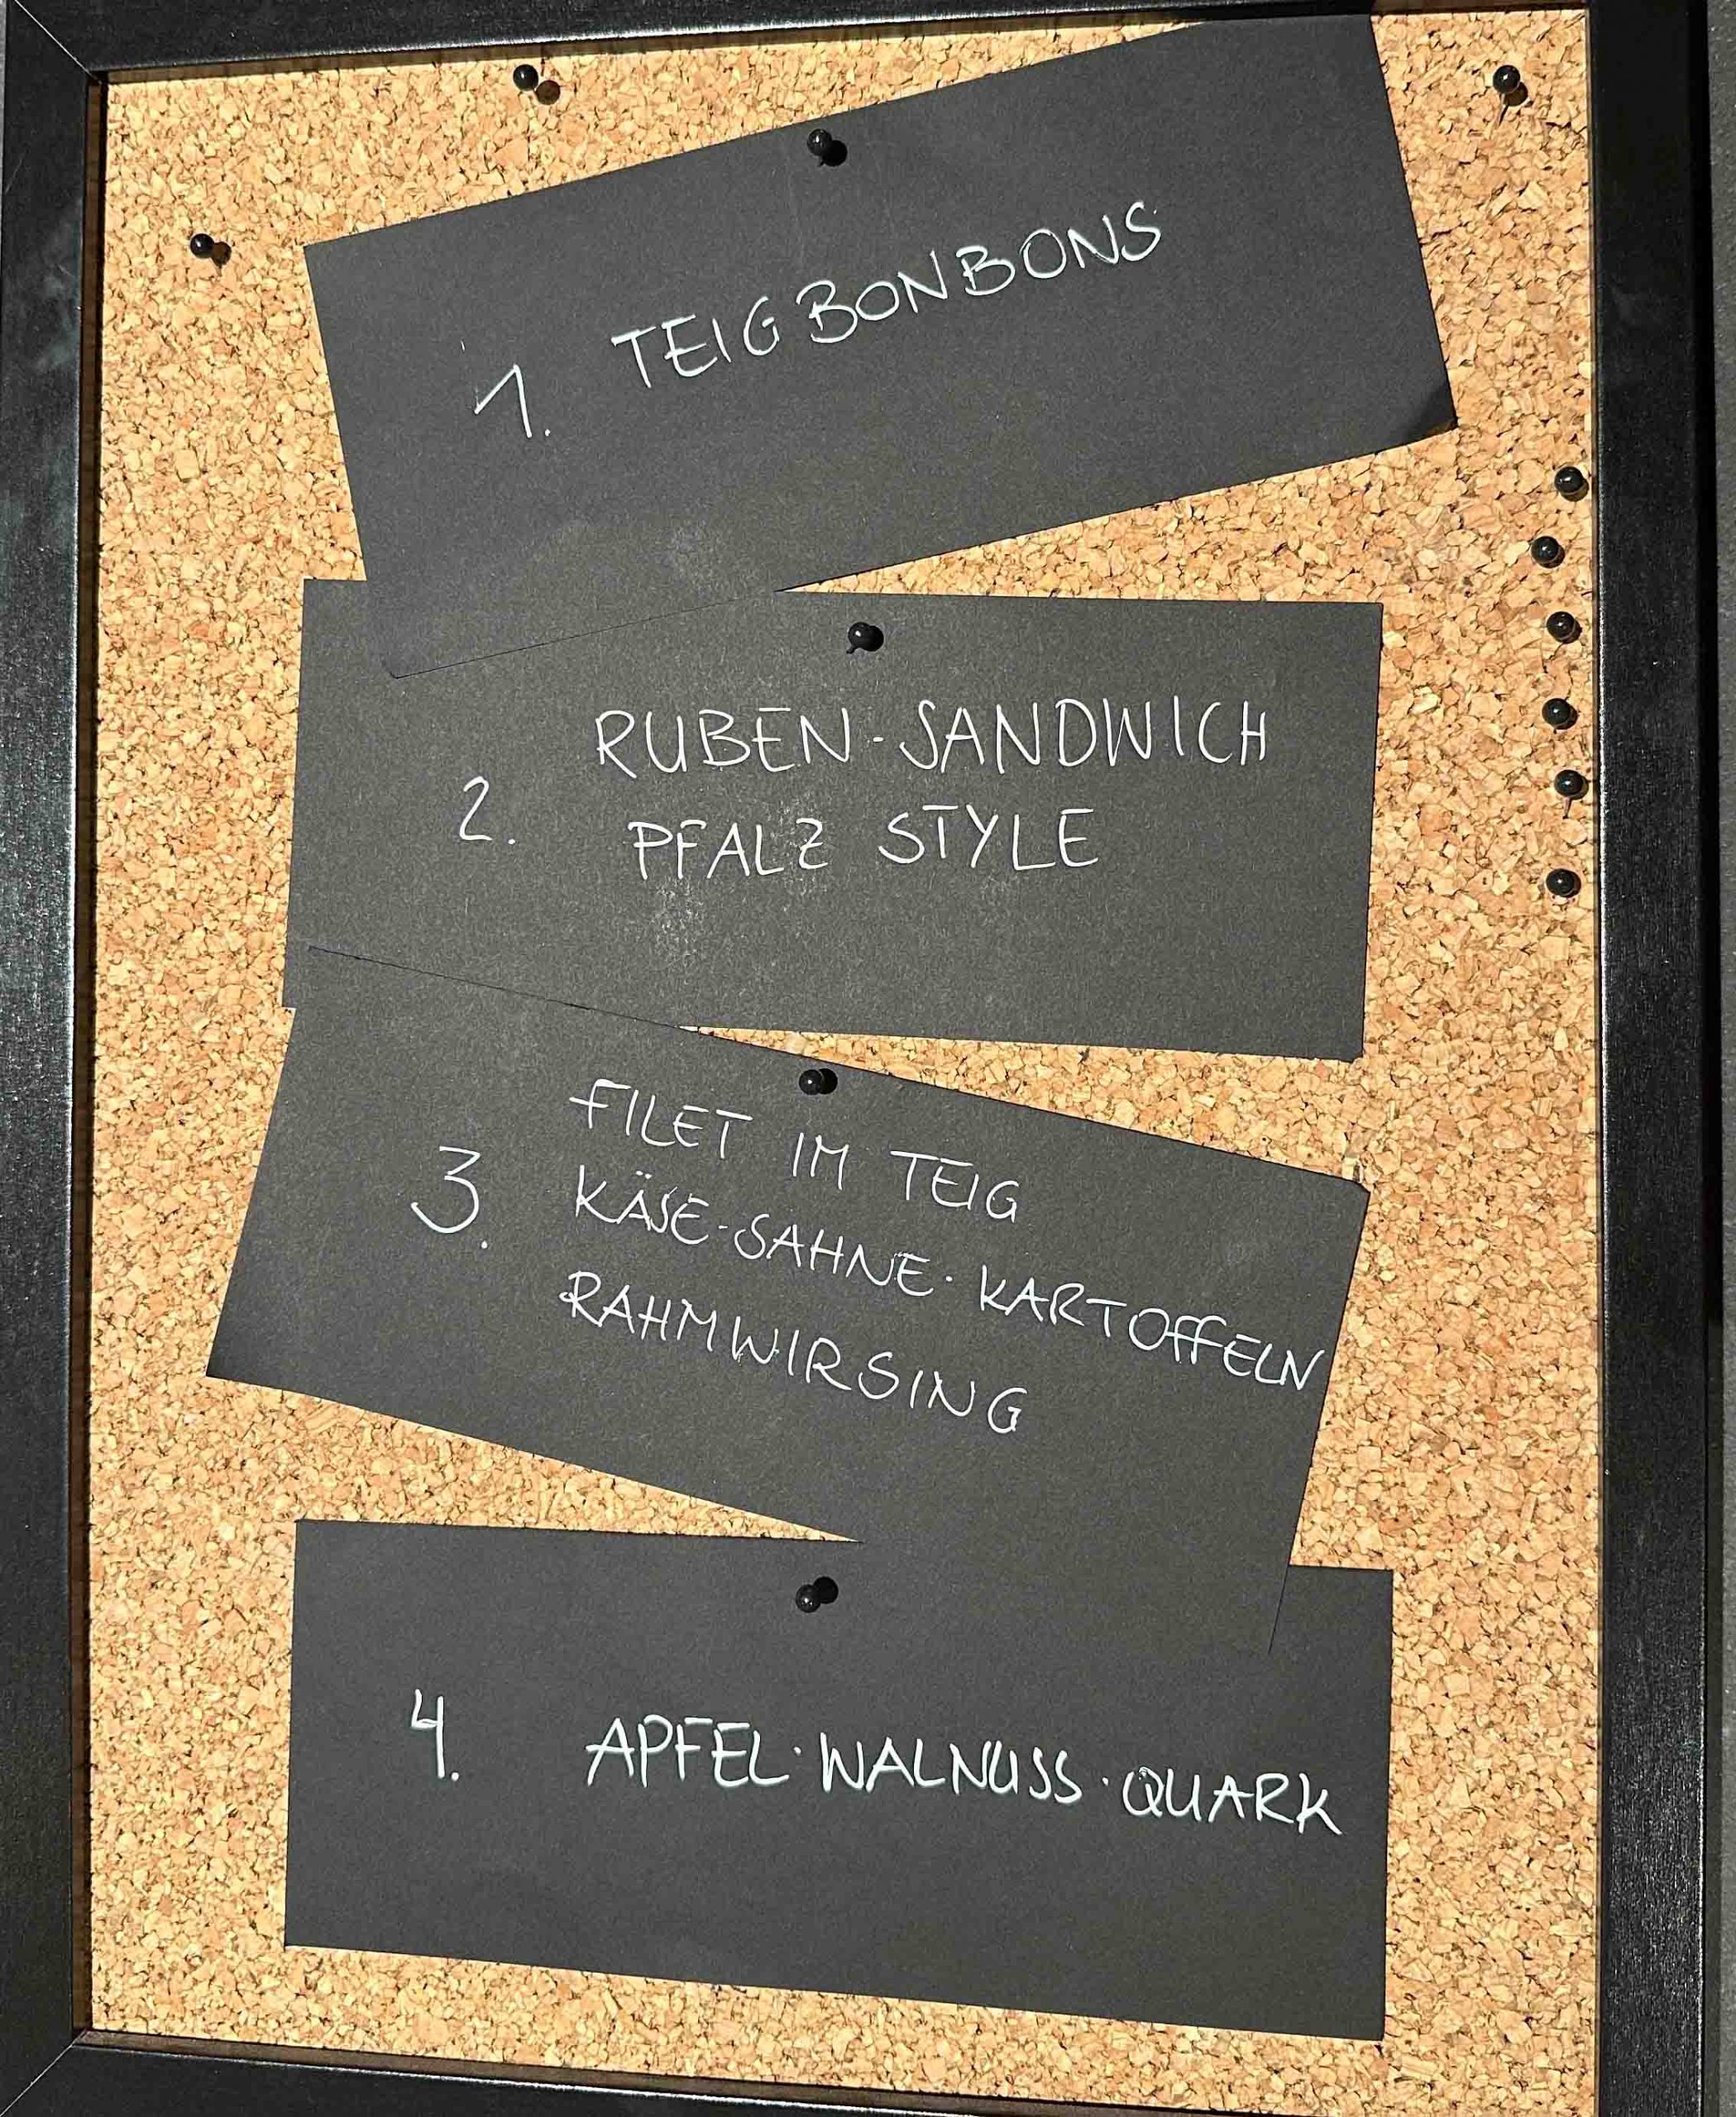 1. TEIGBONBONS
RUBEN-SANDWICH
2. PFALZ STYLE
FILET IM TEIG
3. KÄSE-SAHNE-KARTOFFELN
RAHMWIRSING
4. APFEL-WALNUSS-QUARK